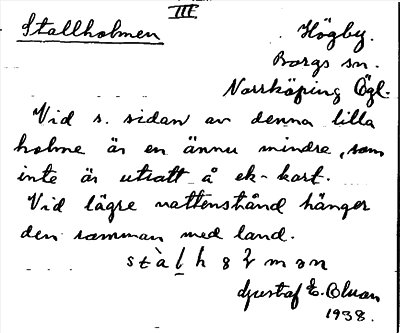 III
Stallholmen
Högby.
Borgs sn.
Norrköping Ögl.
Vid s. sidan av denna lilla
holme är en ännu mindre, som
inte är utsatt å ek-kart.
Vid lägre vattenstånd hänger
den samman med land.
Gustaf E. Olson
1938.